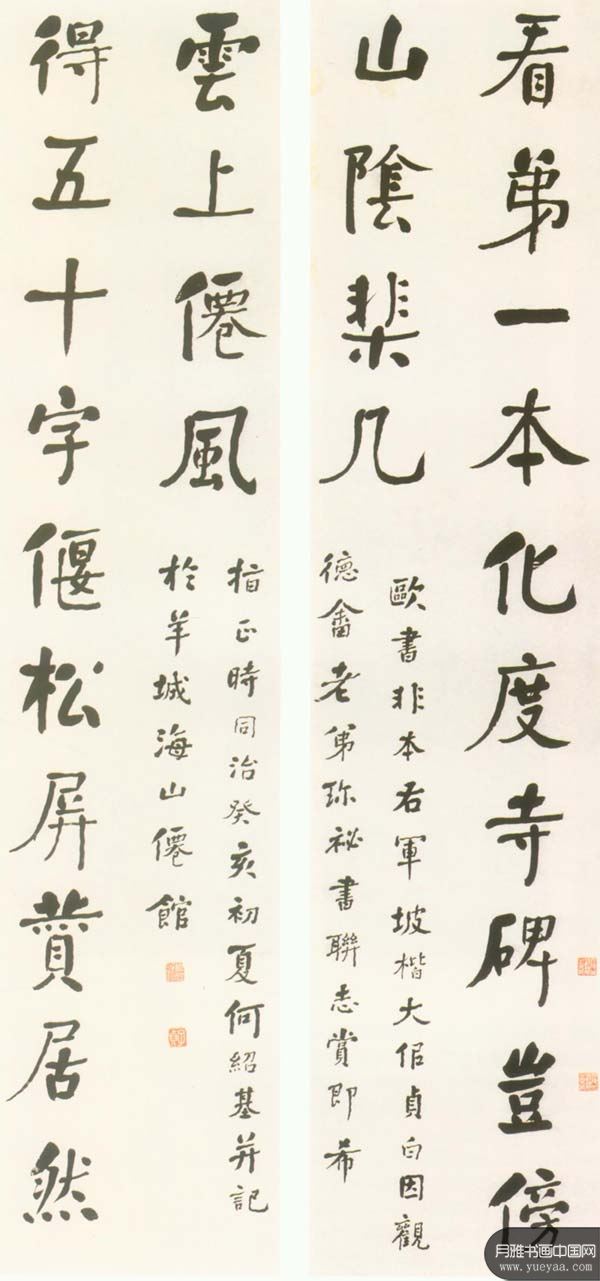 看弟一本化度寺碑豈傍
山陰棐几
歐書非本右軍坡楷大佀貞白因觀
德畬老弟珎祕書聯志賞即希
得五十字偃松屏贊居然
雲上僊風
指正時同治癸亥初夏何紹基并記
於羊城海山僊館
月雅书画中国网
www.yueyaa.com